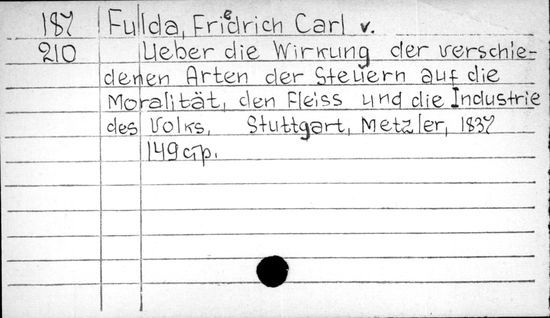 187 Fulda, Friedrich Carl v.
210 Ueber die Wirkung der verschie-
denen Arten der Steuern auf die
Moralität, den Fleiss und die Industrie
des Volks, Stuttgart, Metzler, 1837
149 стр.